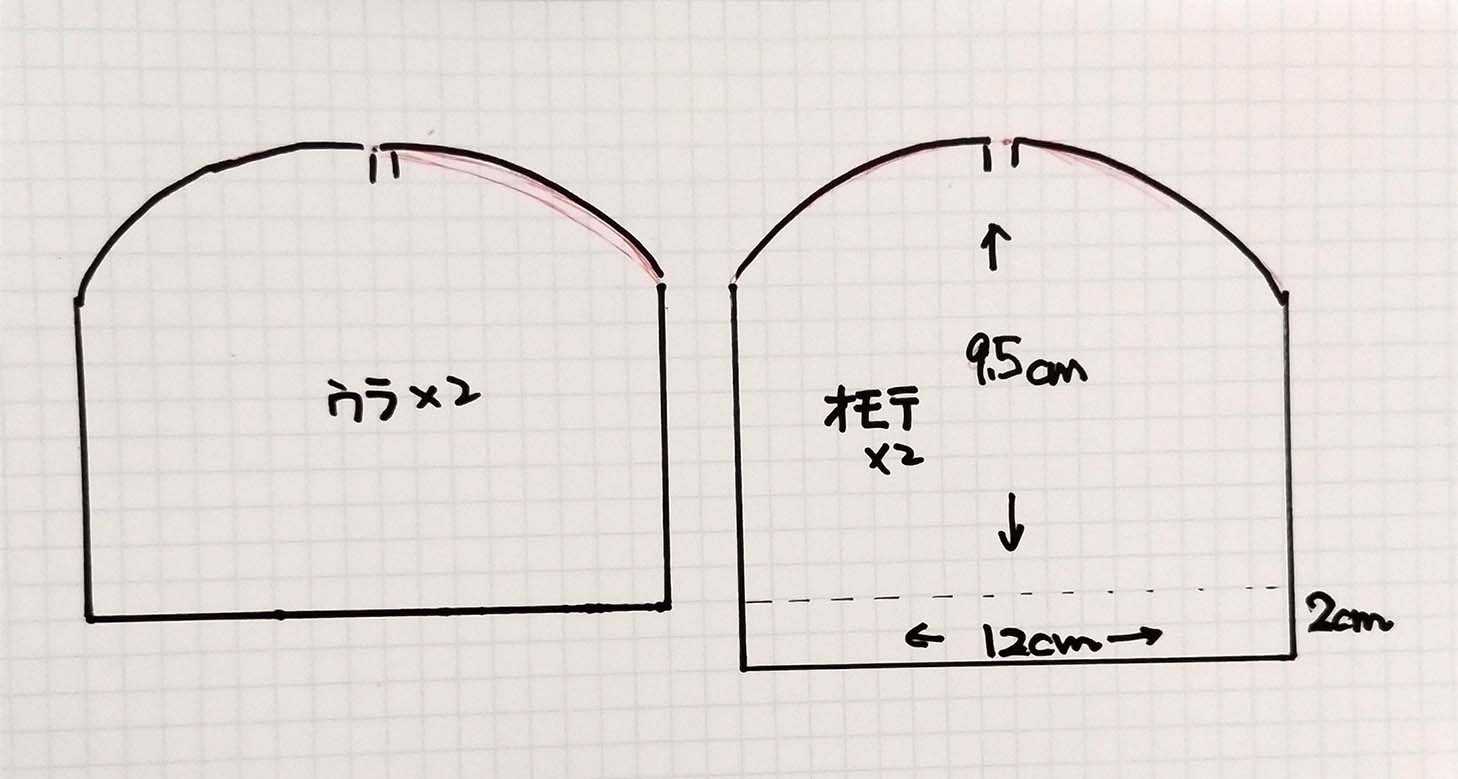 ウラ×2
9.5cm
オモテ
×2
2cm
← 12cm →